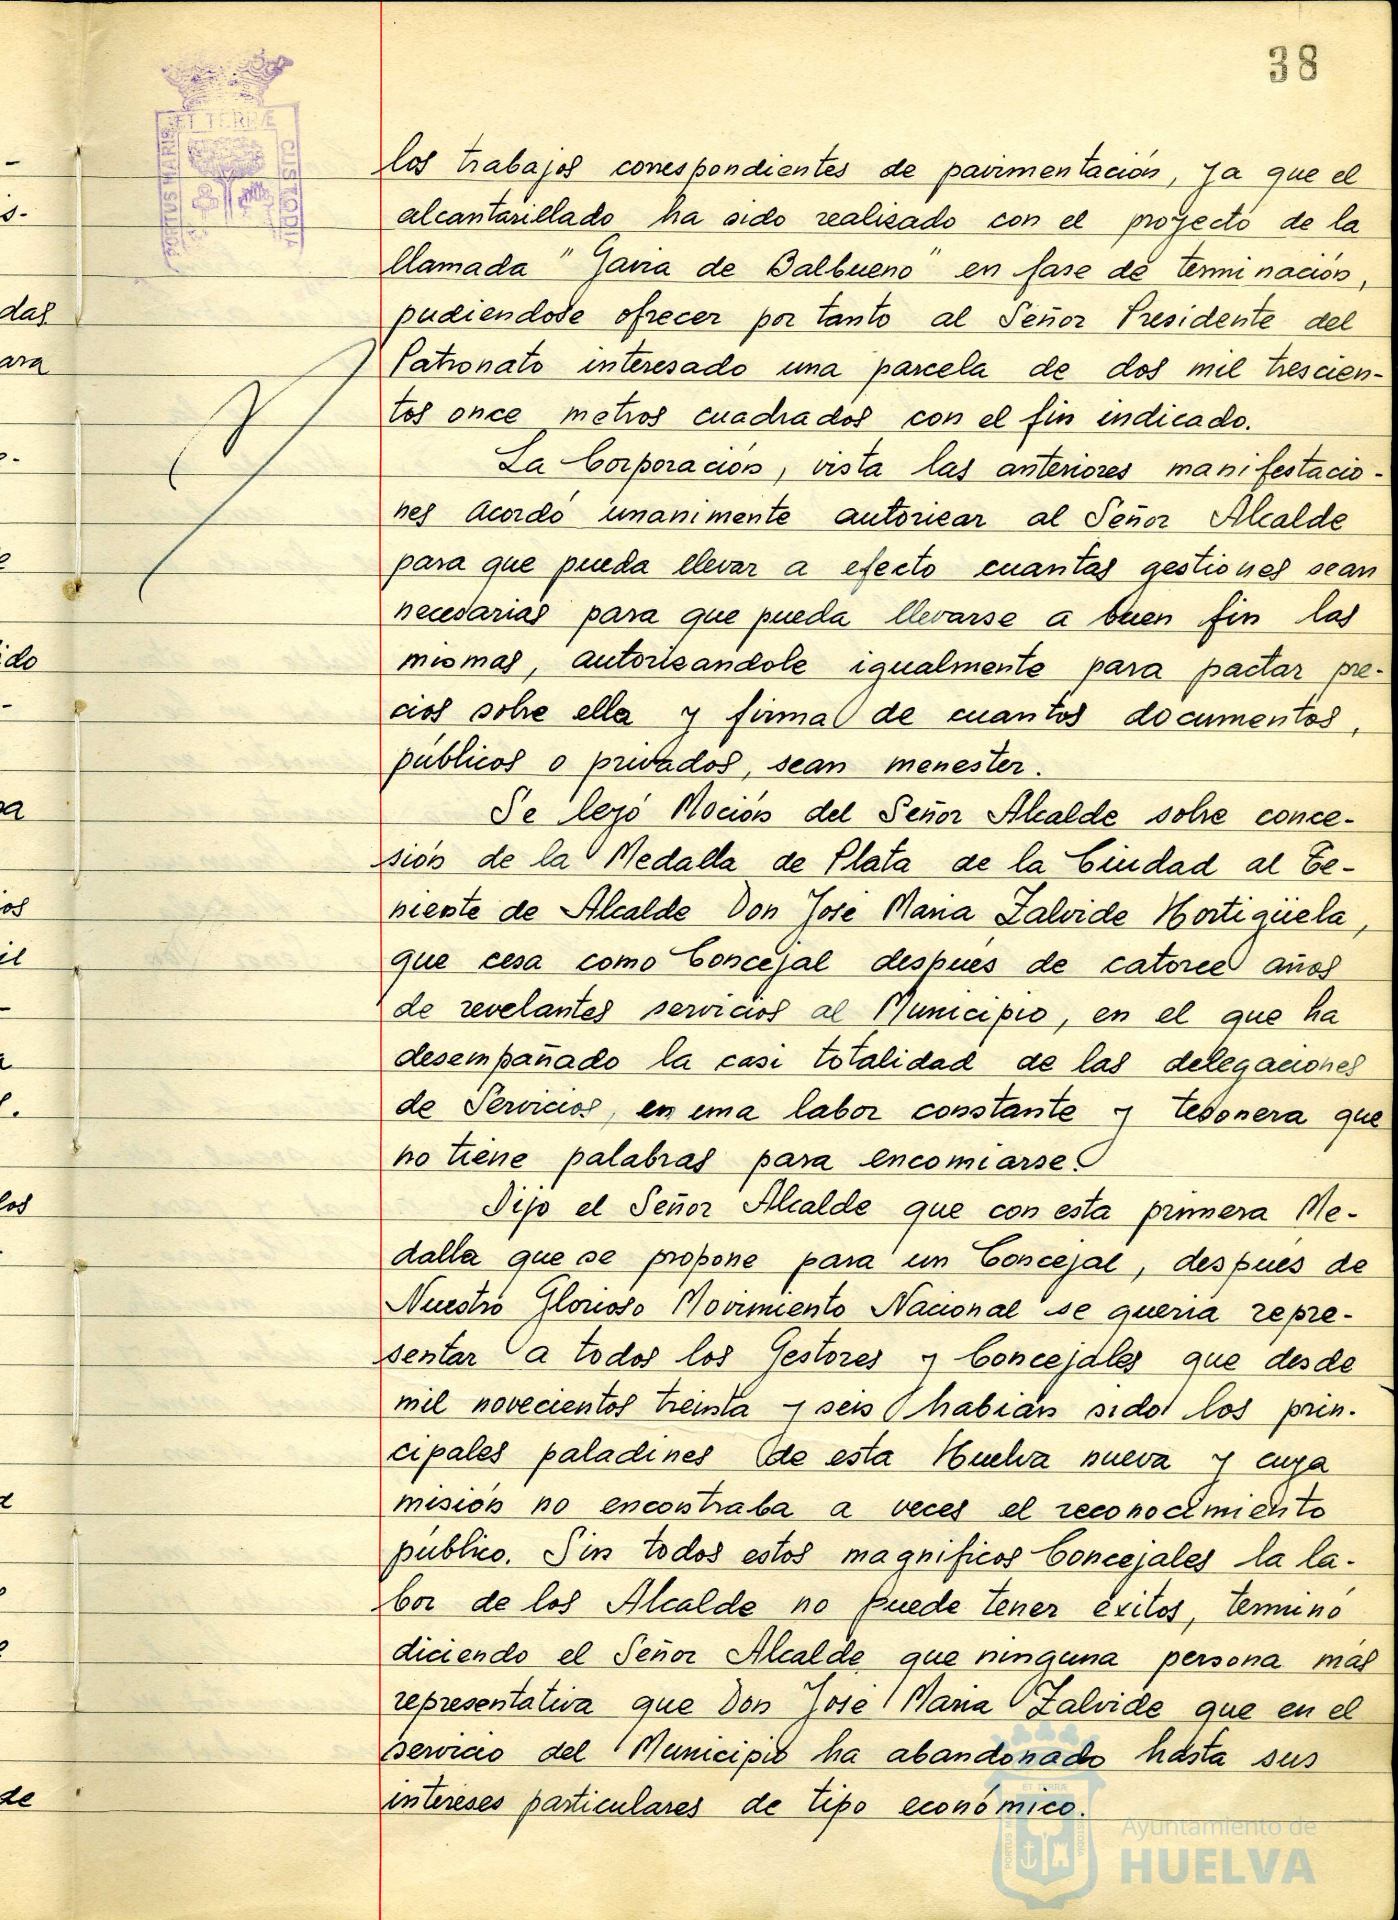 38
PORTUS MARIS ET TERRÆ CUSTODIA
los trabajos correspondientes de pavimentación, ya que el
alcantarillado ha sido realizado con el proyecto de la
llamada "Gavia de Balbueno" en fase de terminación,
pudiendose ofrecer por tanto al Señor Presidente del
Patronato interesado una parcela de dos mil trescien-
tos once metros cuadrados con el fin indicado.
La Corporación, vista las anteriores manifestacio-
nes acordó unanimente autorizar al Señor Alcalde
para que pueda llevar a efecto cuantas gestiones sean
necesarias para que pueda llevarse a buen fin las
mismas, autorizandole igualmente para pactar pre-
cios sobre ella y firma de cuantos documentos,
públicos o privados, sean menester.
Se leyó Moción del Señor Alcalde sobre conce-
sión de la Medalla de Plata de la Ciudad al Te-
niente de Alcalde Don José Maria Zalvide Hortigüela,
que cesa como Concejal después de catorce años
de revelantes servicios al Municipio, en el que ha
desempañado la casi totalidad de las delegaciones
de Servicios, en una labor constante y tesonera que
no tiene palabras para encomiarse.
Dijo el Señor Alcalde que con esta primera Me-
dalla que se propone para un Concejal, después de
Nuestro Glorioso Movimiento Nacional se queria repre-
sentar a todos los Gestores y Concejales que desde
mil novecientos treinta y seis habian sido los prin-
cipales paladines de esta Huelva nueva y cuya
misión no encontraba a veces el reconocimiento
público. Sin todos estos magnificos Concejales la la-
bor de los Alcalde no puede tener éxitos, terminó
diciendo el Señor Alcalde que ninguna persona más
representativa que Don José Maria Zalvide que en el
servicio del Municipio ha abandonado hasta sus
intereses particulares de tipo económico.
das
ara
ido
os
il
los
de
Ayuntamiento de
HUELVA